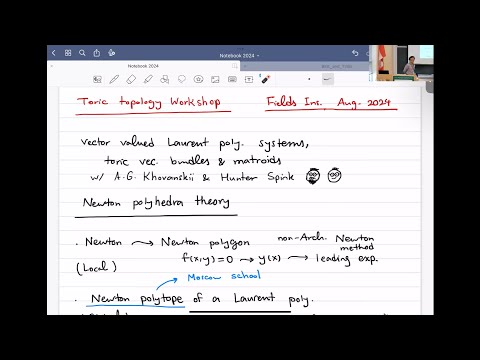 Notebook 2024
Notebook 2024
Toric topology Workshop Fields Ins. Aug. 2024
Vector valued Laurent poly. systems,
toric vec. bundles & matroids
w/ A.G. Khovanskii & Hunter Spink
Newton polyhedra theory
. Newton → Newton polygon non-Arch. Newton method
(Local) f(x,y)=0 → y(x) → leading exp.
Moscow school
. Newton polytope of a Laurent poly.